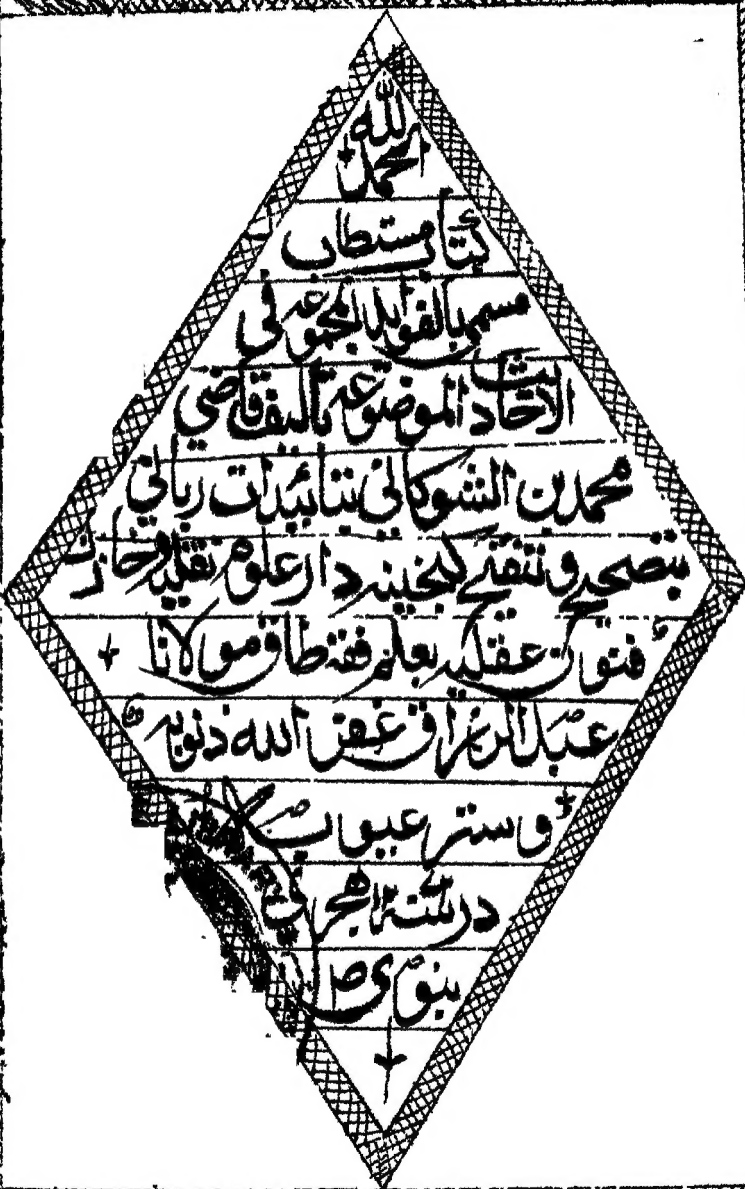 الحمد لله
كتاب مستطاب
مسمى بالفوايد المجموعه في
الاحاديث الموضوعه تاليف قاضي
محمد بن الشوكاني بتائيدات رباني
بتصحيح وتنقيح گنجينه دار علوم نقليه وخازن
فنون عقليه بعلم فقه طاق مولانا
عبد الرزاق غفر الله ذنوبه
وستر عيوبه
در سنه هجري
نبوي